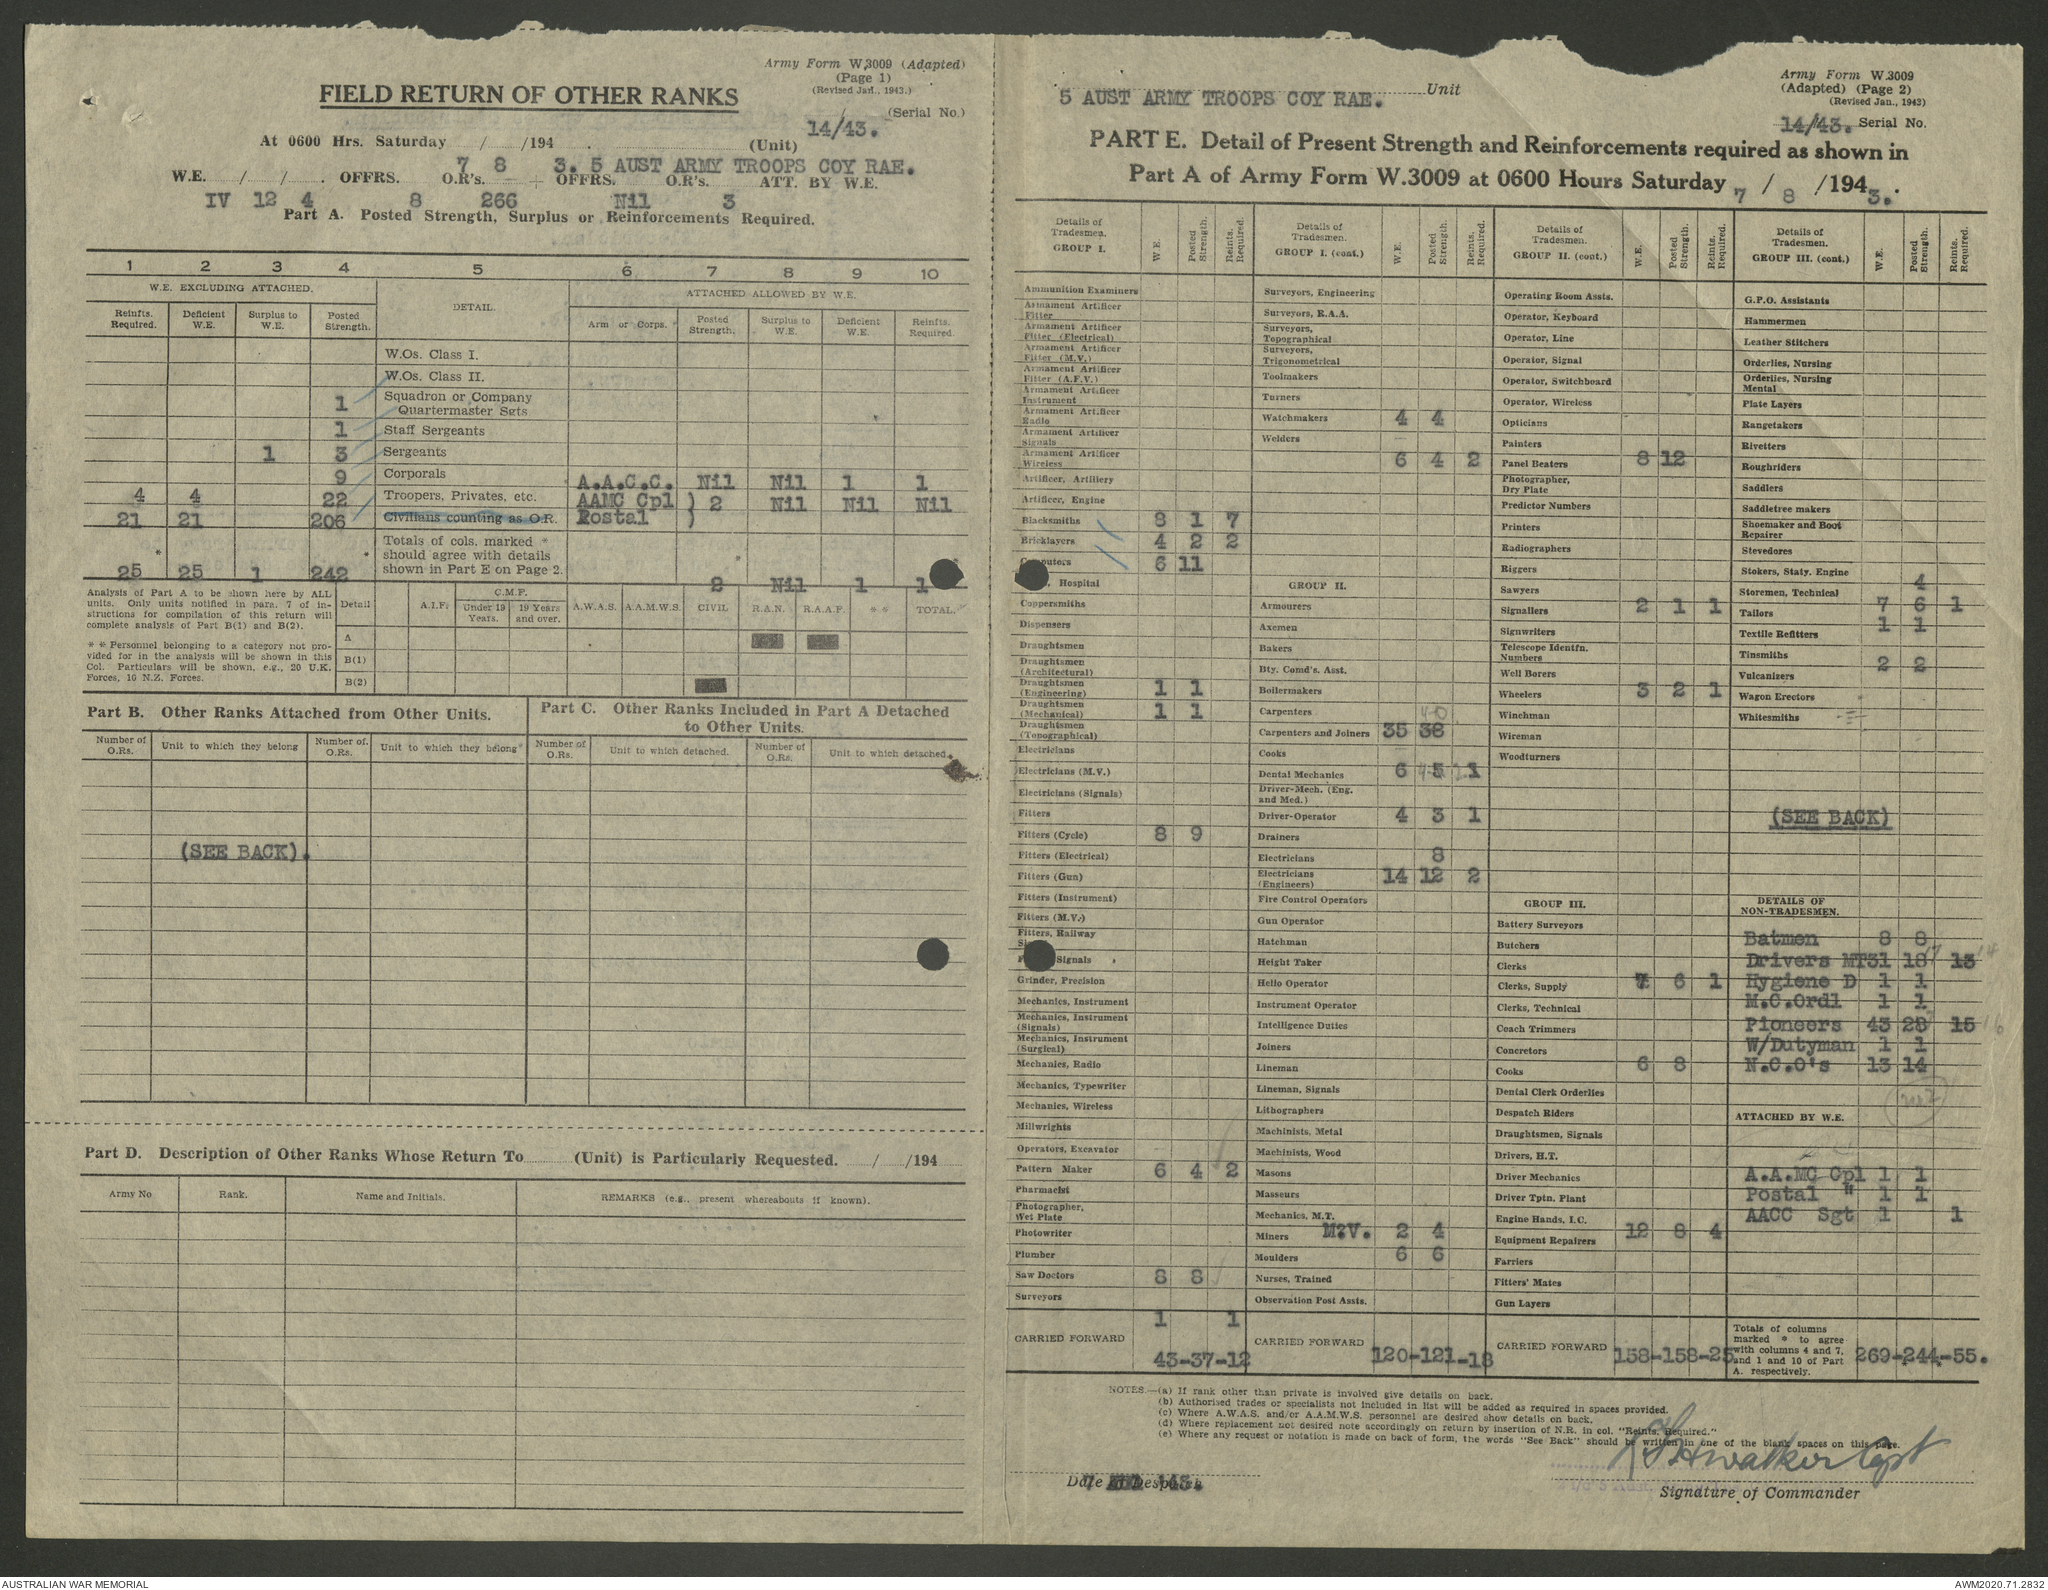 Army Form W.3009 (Adapted)
(Page 1)
(Revised Jan., 1943.)
FIELD RETURN OF OTHER RANKS
(Serial No.)
14/43.
At 0600 Hrs. Saturday / /194 . (Unit)
7 8 3. 5 AUST ARMY TROOPS COY RAE.
W.E. / / . OFFRS. O.R's. + OFFRS. O.R's. ATT. BY W.E.
IV 12 4 8 266 Nil 3
Part A. Posted Strength, Surplus or Reinforcements Required.
1 2 3 4 5 6 7 8 9 10
W.E. EXCLUDING ATTACHED. DETAIL. ATTACHED ALLOWED BY W.E.
Reinfts. Required. Deficient W.E. Surplus to W.E. Posted Strength. Arm or Corps. Posted Strength. Surplus to W.E. Deficient W.E. Reinfts. Required.
W.Os. Class I.
W.Os. Class II.
1 Squadron or Company Quartermaster Sgts
1 Staff Sergeants
1 3 Sergeants
9 Corporals A.A.C.C. Nil Nil 1 1
4 4 22 Troopers, Privates, etc. AAMC Cpl ) 2 Nil Nil Nil
21 21 206 Civilians counting as O.R. Postal )
* * Totals of cols. marked *
should agree with details
shown in Part E on Page 2.
25 25 1 242 2 Nil 1 1
Analysis of Part A to be shown here by ALL
units. Only units notified in para. 7 of in-
structions for compilation of this return will
complete analysis of Part B(1) and B(2).
* * Personnel belonging to a category not pro-
vided for in the analysis will be shown in this
Col. Particulars will be shown, e.g., 20 U.K.
Forces, 16 N.Z. Forces.
Detail A.I.F. C.M.F. Under 19 Years. 19 Years and over. A.W.A.S. A.A.M.W.S. CIVIL R.A.N. R.A.A.F. * * TOTAL.
A
B(1)
B(2)
Part B. Other Ranks Attached from Other Units.
Number of O.Rs. Unit to which they belong Number of O.Rs. Unit to which they belong
(SEE BACK).
Part C. Other Ranks Included in Part A Detached
to Other Units.
Number of O.Rs. Unit to which detached. Number of O.Rs. Unit to which detached.
Part D. Description of Other Ranks Whose Return To (Unit) is Particularly Requested. / /194
Army No Rank. Name and Initials. REMARKS (e.g., present whereabouts if known).
5 AUST ARMY TROOPS COY RAE. Unit
Army Form W.3009
(Adapted) (Page 2)
(Revised Jan., 1943)
14/43. Serial No.
PART E. Detail of Present Strength and Reinforcements required as shown in
Part A of Army Form W.3009 at 0600 Hours Saturday 7 / 8 / 1943.
Details of Tradesmen. GROUP I. W.E. Posted Strength. Reints. Required.
Ammunition Examiners
Armament Artificer Fitter
Armament Artificer Fitter (Electrical)
Armament Artificer Fitter (M.V.)
Armament Artificer Fitter (A.F.V.)
Armament Artificer Instrument
Armament Artificer Radio
Armament Artificer Signals
Armament Artificer Wireless
Artificer, Artillery
Artificer, Engine
Blacksmiths 8 1 7
Bricklayers 4 2 2
puters 6 11
, Hospital
Coppersmiths
Dispensers
Draughtsmen
Draughtsmen (Architectural)
Draughtsmen (Engineering) 1 1
Draughtsmen (Mechanical) 1 1
Draughtsmen (Topographical)
Electricians
Electricians (M.V.)
Electricians (Signals)
Fitters
Fitters (Cycle) 8 9
Fitters (Electrical)
Fitters (Gun)
Fitters (Instrument)
Fitters (M.V.)
Fitters, Railway
Signals
Grinder, Precision
Mechanics, Instrument
Mechanics, Instrument (Signals)
Mechanics, Instrument (Surgical)
Mechanics, Radio
Mechanics, Typewriter
Mechanics, Wireless
Millwrights
Operators, Excavator
Pattern Maker 6 4 2
Pharmacist
Photographer, Wet Plate
Photowriter
Plumber
Saw Doctors 8 8
Surveyors
1 1
CARRIED FORWARD 43-37-12
Details of Tradesmen. GROUP I. (cont.) W.E. Posted Strength. Reints. Required.
Surveyors, Engineering
Surveyors, R.A.A.
Surveyors, Topographical
Surveyors, Trigonometrical
Toolmakers
Turners
Watchmakers 4 4
Welders
6 4 2
GROUP II.
Armourers
Axemen
Bakers
Bty. Comd's. Asst.
Boilermakers
Carpenters 40
Carpenters and Joiners 35 38
Cooks
Dental Mechanics 6 5 1
Driver-Mech. (Eng. and Med.)
Driver-Operator 4 3 1
Drainers
Electricians 8
Electricians (Engineers) 14 12 2
Fire Control Operators
Gun Operator
Hatchman
Height Taker
Hello Operator
Instrument Operator
Intelligence Duties
Joiners
Lineman
Lineman, Signals
Lithographers
Machinists, Metal
Machinists, Wood
Masons
Masseurs
Mechanics, M.T.
Miners M.V. 2 4
Moulders 6 6
Nurses, Trained
Observation Post Assts.
CARRIED FORWARD 120-121-18
Details of Tradesmen. GROUP II. (cont.) W.E. Posted Strength. Reints. Required.
Operating Room Assts.
Operator, Keyboard
Operator, Line
Operator, Signal
Operator, Switchboard
Operator, Wireless
Opticians
Painters
Panel Beaters 8 12
Photographer, Dry Plate
Predictor Numbers
Printers
Radiographers
Riggers
Sawyers
Signallers 2 1 1
Signwriters
Telescope Identfn. Numbers
Well Borers
Wheelers 3 2 1
Winchman
Wireman
Woodturners
GROUP III.
Battery Surveyors
Butchers
Clerks
Clerks, Supply 7 6 1
Clerks, Technical
Coach Trimmers
Concretors
Cooks 6 8
Dental Clerk Orderlies
Despatch Riders
Draughtsmen, Signals
Drivers, H.T.
Driver Mechanics
Driver Tptn. Plant
Engine Hands, I.C.
Equipment Repairers 12 8 4
Farriers
Fitters' Mates
Gun Layers
CARRIED FORWARD 158-158-25
Details of Tradesmen. GROUP III. (cont.) W.E. Posted Strength. Reints. Required.
G.P.O. Assistants
Hammermen
Leather Stitchers
Orderlies, Nursing
Orderlies, Nursing Mental
Plate Layers
Rangetakers
Rivetters
Roughriders
Saddlers
Saddletree makers
Shoemaker and Boot Repairer
Stevedores
Stokers, Staty. Engine
Storemen, Technical 4
Tailors 7 6 1
Textile Refitters 1 1
Tinsmiths
Vulcanizers 2 2
Wagon Erectors
Whitesmiths
(SEE BACK)
DETAILS OF NON-TRADESMEN.
Batmen 8 8
Drivers MT 31 18 13
Hygiene D 1 1
M.C.Ordl 1 1
Pioneers 43 28 15 16
W/Dutyman 1 1
N.C.O's 13 14
ATTACHED BY W.E.
A.A.MC Cpl 1 1
Postal " 1 1
AACC Sgt 1 1
Totals of columns
marked * to agree
with columns 4 and 7,
and 1 and 10 of Part
A. respectively.
269-244-55.
NOTES.—(a) If rank other than private is involved give details on back.
(b) Authorised trades or specialists not included in list will be added as required in spaces provided.
(c) Where A.W.A.S. and/or A.A.M.W.S. personnel are desired show details on back.
(d) Where replacement not desired note accordingly on return by insertion of N.R. in col. "Reints. Required."
(e) Where any request or notation is made on back of form, the words "See Back" should be written in one of the blank spaces on this page.
Walker Capt
Date of Despatch
7 43.
Signature of Commander
AUSTRALIAN WAR MEMORIAL
AWM2020.71.2832